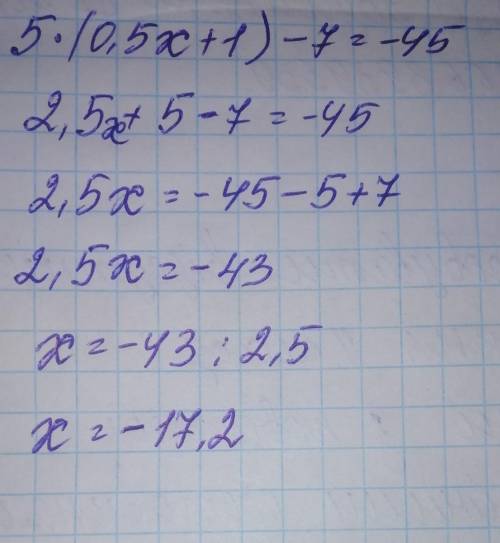 5·(0,5x+1)-7=-45
2,5x+5-7=-45
2,5x=-45-5+7
2,5x=-43
x=-43:2,5
x=-17,2